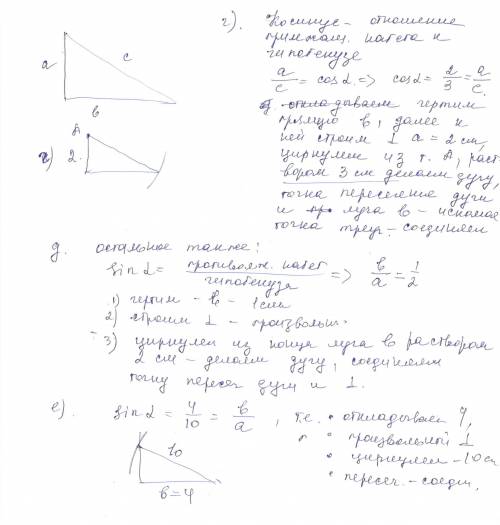 г). Косинус – отношение
прилежащ. катета к
гипотенузе
a c
в
a/c = cos α => cos α = 2/3 = a/c.
чертим
прямую в, далее к
ней строим ⊥ a = 2 см,
циркулем из т. А, раст-
вором 3 см делаем дугу,
точка пересечение дуги
и луча в – искомая
точка треуг – соединяем
A
г) 2.
д. остальное также!
sin α = противолеж. катет / гипотенуза => в/a = 1/2
1) чертим – в – 1 см
2) строим ⊥ – произвольн.
3) циркулем из конца луча в раствором
2 см – делаем дугу, соединяем
точку пересеч дуги и ⊥.
е). sin α = 4/10 = в/a, т.е. • откладываем 4,
• произвольной ⊥
• циркулем – 10 см
• пересеч. – соедин.
10
в = 4